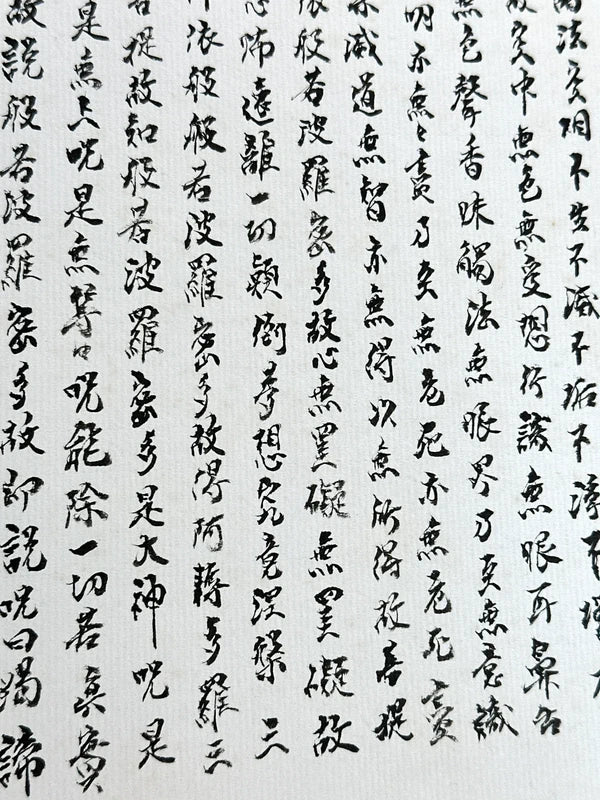 法空相不生不滅不垢不淨不增不
故空中無色無受想行識無眼耳鼻舌
無色聲香味觸法無眼界乃至無意識
明亦無々盡乃至無老死亦無老死盡
滅道無智亦無得以無所得故菩提
依般若波羅蜜多故心無罣礙無罣礙故
怖遠離一切顛倒夢想究竟涅槃三
依般般若波羅蜜多故得阿耨多羅三
菩提故知般若波羅蜜多是大神呪是
是無上呪是無等々呪能除一切苦真實
故說般若波羅蜜多故即說呪曰揭諦